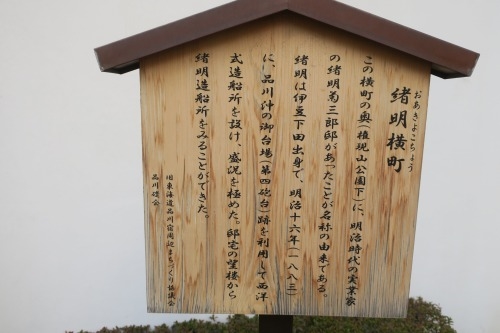 おあきよこちょう
緒明横町
この横町の奥(権現山公園下)に、明治時代の実業家
の緒明菊三郎邸があったことが名称の由来である。
緒明は伊豆下田出身で、明治十六年(一八八三)
に、品川沖の御台場(第四砲台)跡を利用して西洋
式造船所を設け、盛況を極めた。邸宅の望楼から
緒明造船所をみることができた。
旧東海道品川宿周辺まちづくり協議会
品川宿会